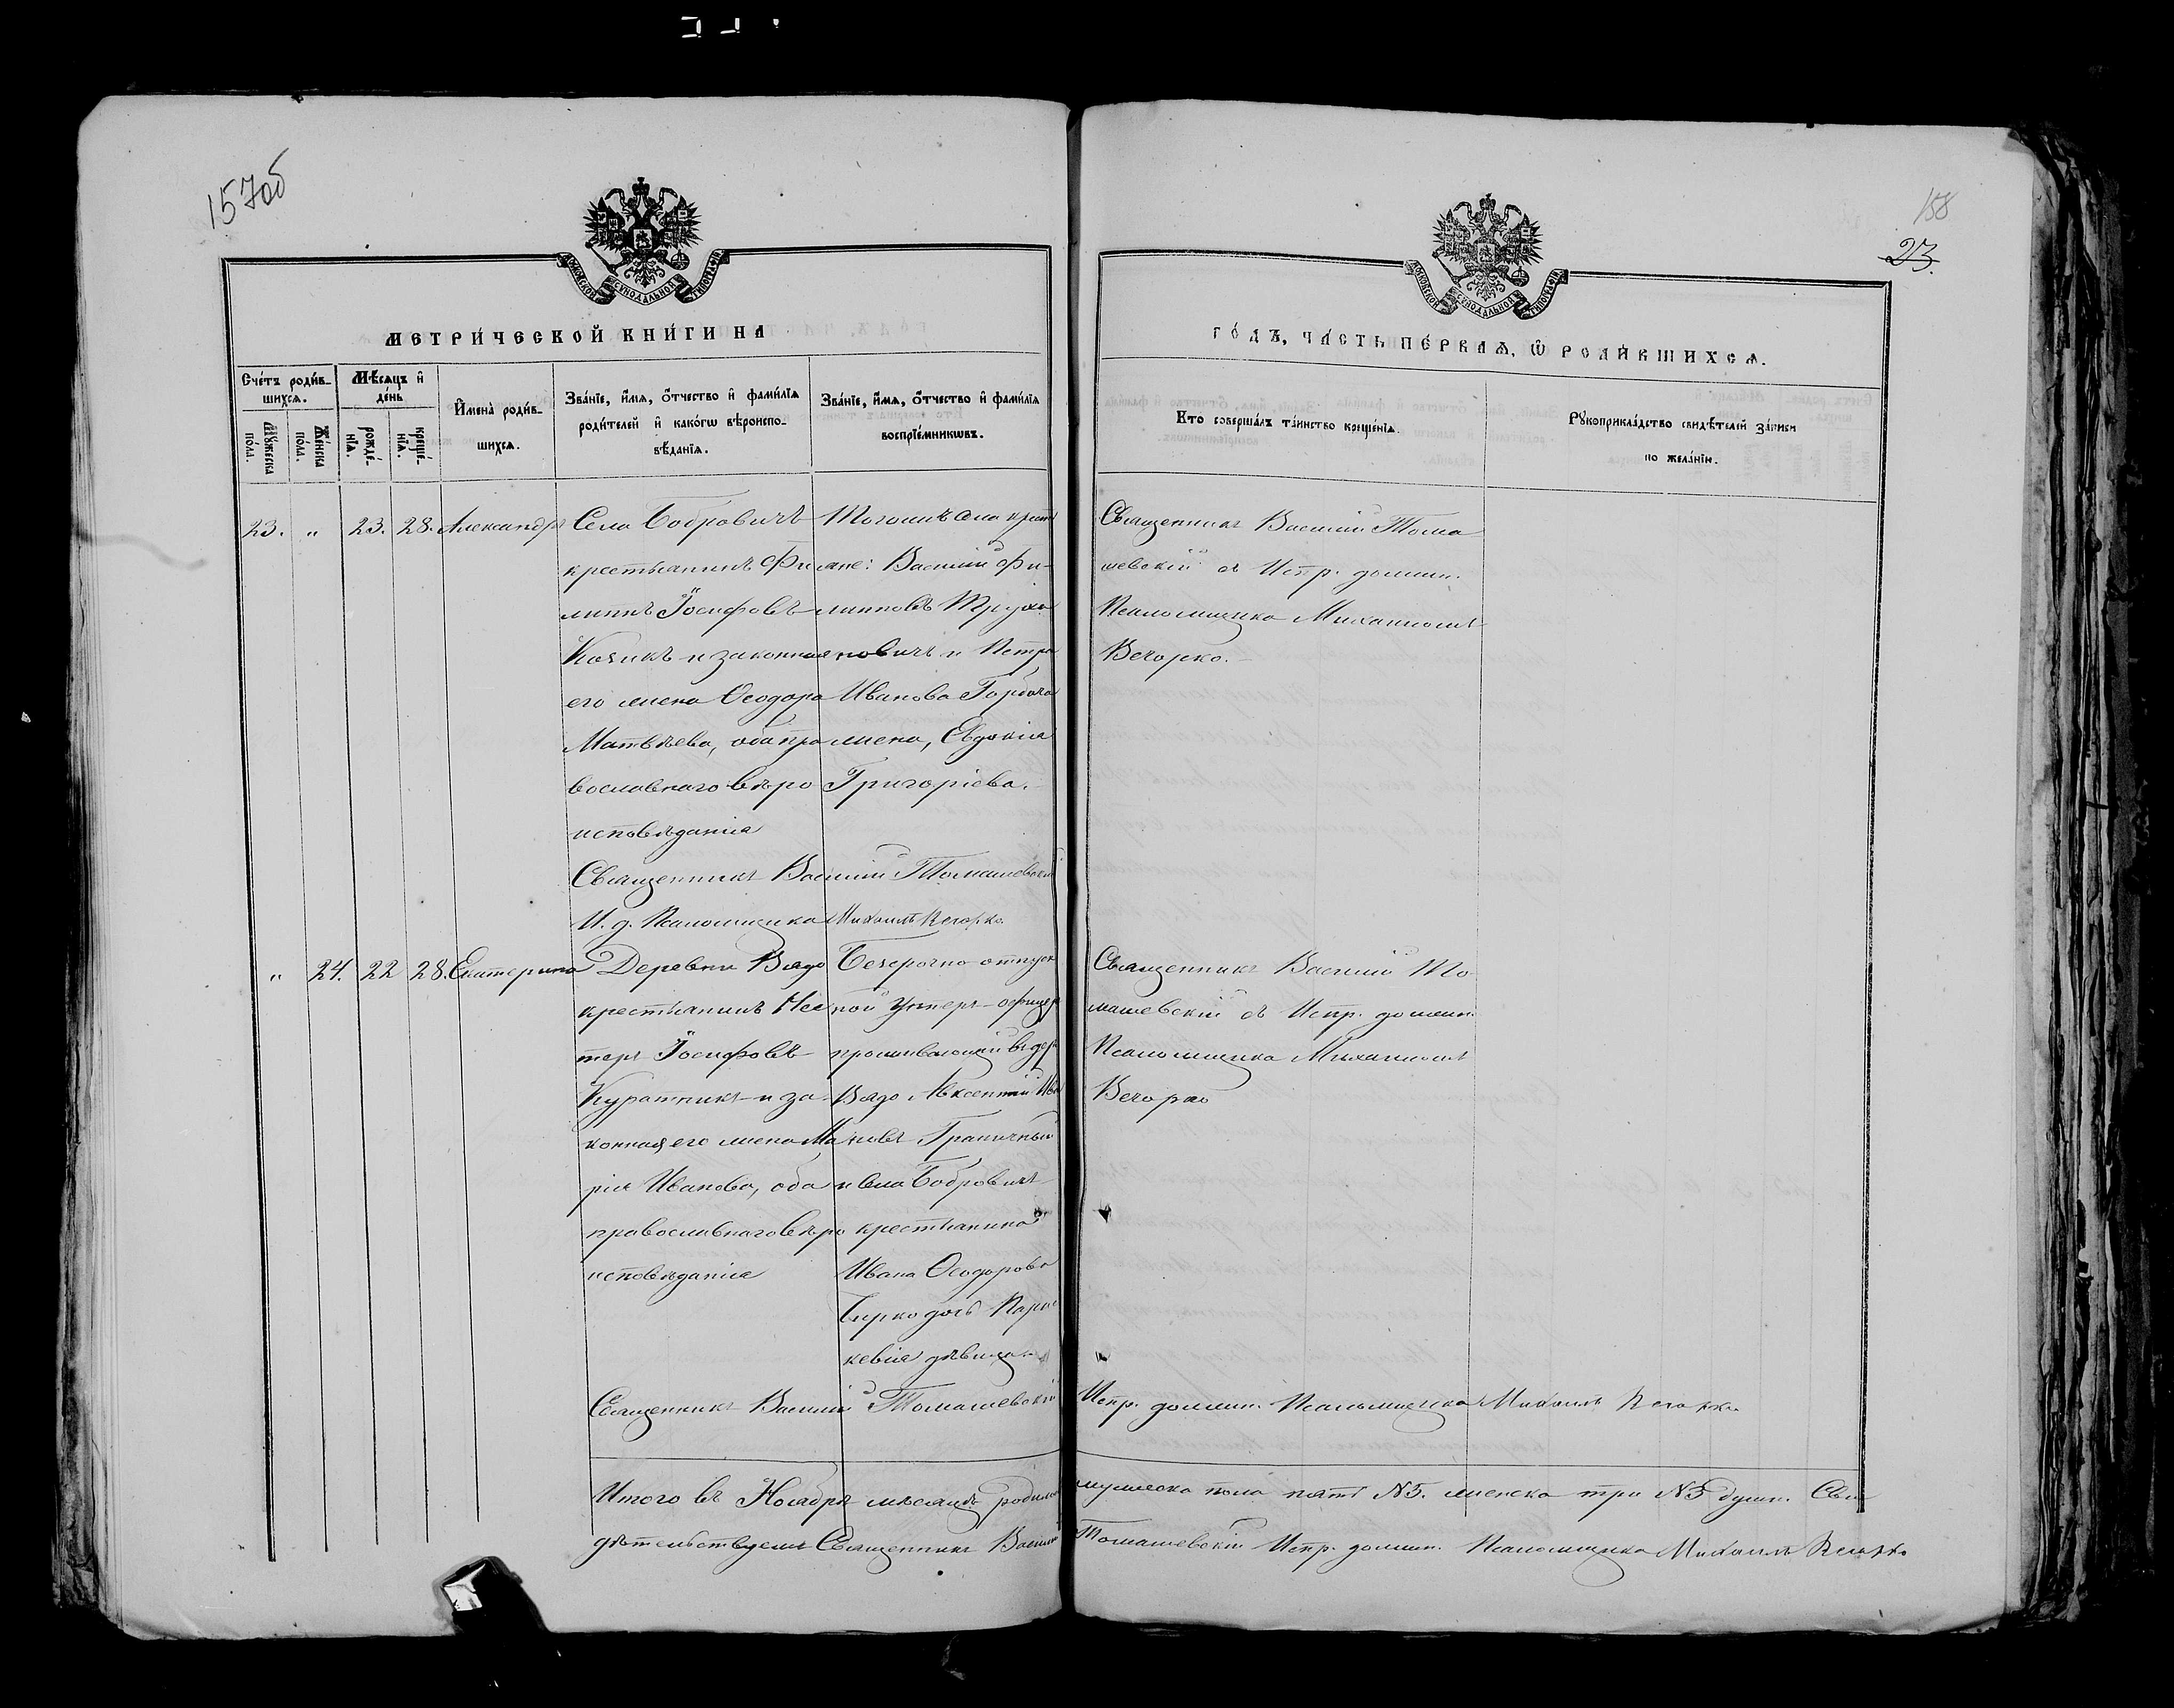 157об
158
23.
МОСКОВСКОЙ СѴНОДАЛЬНОЙ ТИПОГРАФІИ
МОСКОВСКОЙ СѴНОДАЛЬНОЙ ТИПОГРАФІИ
МЕТРИ́ЧЕСКОЙ КНИ́ГИ НА
ГО́ДЪ, ЧА́СТЬ ПЕ́РВАѦ, Ѡ҆ РОДИ́ВШИХСѦ.
Сче́тъ роди́в-
шихсѧ.
Му́жеска по́ла.
Же́нска по́ла.
Мѣ́сѧцъ и҆
де́нь
рожде́-нїѧ.
креще́-нїѧ.
И҆мена̀ роди́в-
шихсѧ.
Зва́нїе, и҆́мѧ, ѻ҆́тчество и҆ фами́лїѧ
роди́телей и҆ како́гѡ вѣроиспо-
вѣ́данїѧ.
Зва́нїе, и҆́мѧ, ѻ҆́тчество и҆ фами́лїѧ
воспрїе́мникѡвъ.
Кто̀ соверша́лъ та́инство креще́нїѧ.
Рꙋкоприкла́дство свидѣ́телей за́писи
по жела́нїю.
23. " 23. 28. Александръ
Села Бобровичъ
крестьянинъ Фи-
липпъ Іосифовъ
Козикъ и законная
его жена Ѳеодора
Матвѣева, оба пра
вославнаго вѣро
исповѣданія
Тогожъ села крест
яне: Василій Фи-
липповъ Труха
новичъ и Петра
Иванова Горбача
жена, Евдокія
Григоріева.
Священникъ Василій Тома
шевскій съ Испр. должн.
Псаломщика Михаиломъ
Вечорко.
Священникъ Василій Томашевскій
И. д. Псаломщика Михаилъ Вечорко.
" 24. 22 28. Екатерина
Деревни Вядо
крестьянинъ Нес
теръ Іосифовъ
Куратникъ и за-
конная его жена Ма
рія Иванова, оба
православнаго вѣро
исповѣданія
отпуск
ной Унтеръ-офицер
проживающій въ дер
Вядо Авксентій Ива
новъ Граничный
и села Бобровичъ
крестьянина
Ивана Ѳеодорова
дочь Парас
кевія дѣвица
Священникъ Василій То
машевскій съ Испр. должн.
Псаломщика Михаиломъ
Вечорко
Священникъ Василій Томашевскій Испр. должн. Псаломщика Михаилъ Вечорко.
Итого въ Ноябрѣ мѣсяцѣ родилось мужеска пола пять №5. женска три №3 душъ. Сви
дѣтельствуемъ Священникъ Василій Томашевскій Испр. должн. Псаломщика Михаилъ Вечорко